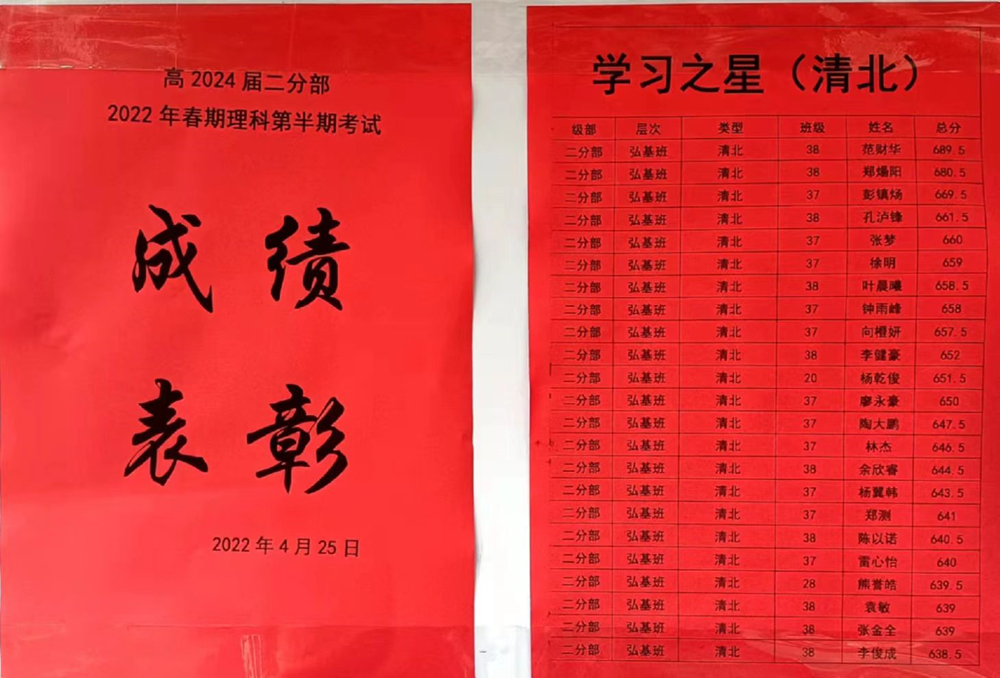 高 2024 届二分部
2022 年春期理科第半期考试
成 绩
表 彰
2022 年 4 月 25 日
学习之星（清北）
级部 层次 类型 班级 姓名 总分
二分部 弘基班 清北 38 范财华 689.5
二分部 弘基班 清北 38 郑爆阳 680.5
二分部 弘基班 清北 37 彭镇炀 669.5
二分部 弘基班 清北 38 孔泸锋 661.5
二分部 弘基班 清北 37 张梦 660
二分部 弘基班 清北 37 徐明 659
二分部 弘基班 清北 38 叶晨曦 658.5
二分部 弘基班 清北 37 钟雨峰 658
二分部 弘基班 清北 37 向橙妍 657.5
二分部 弘基班 清北 38 李健豪 652
二分部 弘基班 清北 20 杨乾俊 651.5
二分部 弘基班 清北 37 廖永豪 650
二分部 弘基班 清北 37 陶大鹏 647.5
二分部 弘基班 清北 37 林杰 646.5
二分部 弘基班 清北 38 余欣睿 644.5
二分部 弘基班 清北 37 杨翼韩 643.5
二分部 弘基班 清北 37 郑测 641
二分部 弘基班 清北 38 陈以诺 640.5
二分部 弘基班 清北 37 雷心怡 640
二分部 弘基班 清北 28 熊誉皓 639.5
二分部 弘基班 清北 38 袁敏 639
二分部 弘基班 清北 38 张金全 639
二分部 弘基班 清北 38 李俊成 638.5